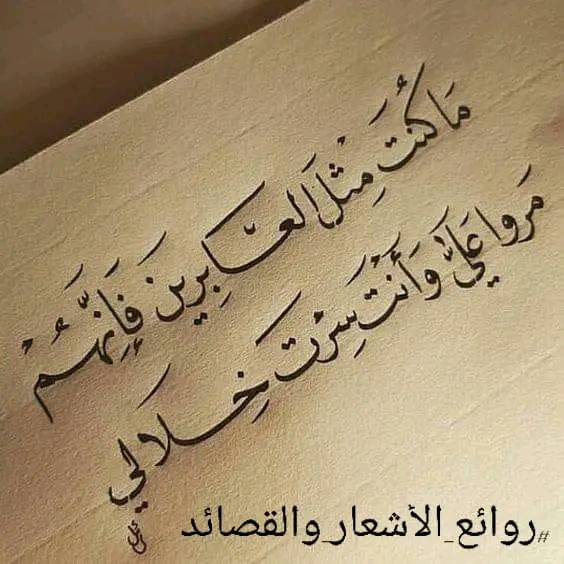 مَا كُنتَ مِثْلَ العَابِرِينَ فَإِنَّهُمْ
مَروا عَلَيَّ وَأَنْتَ سِرْتَ خِلَالِي
#روائع_الأشعار_والقصائد